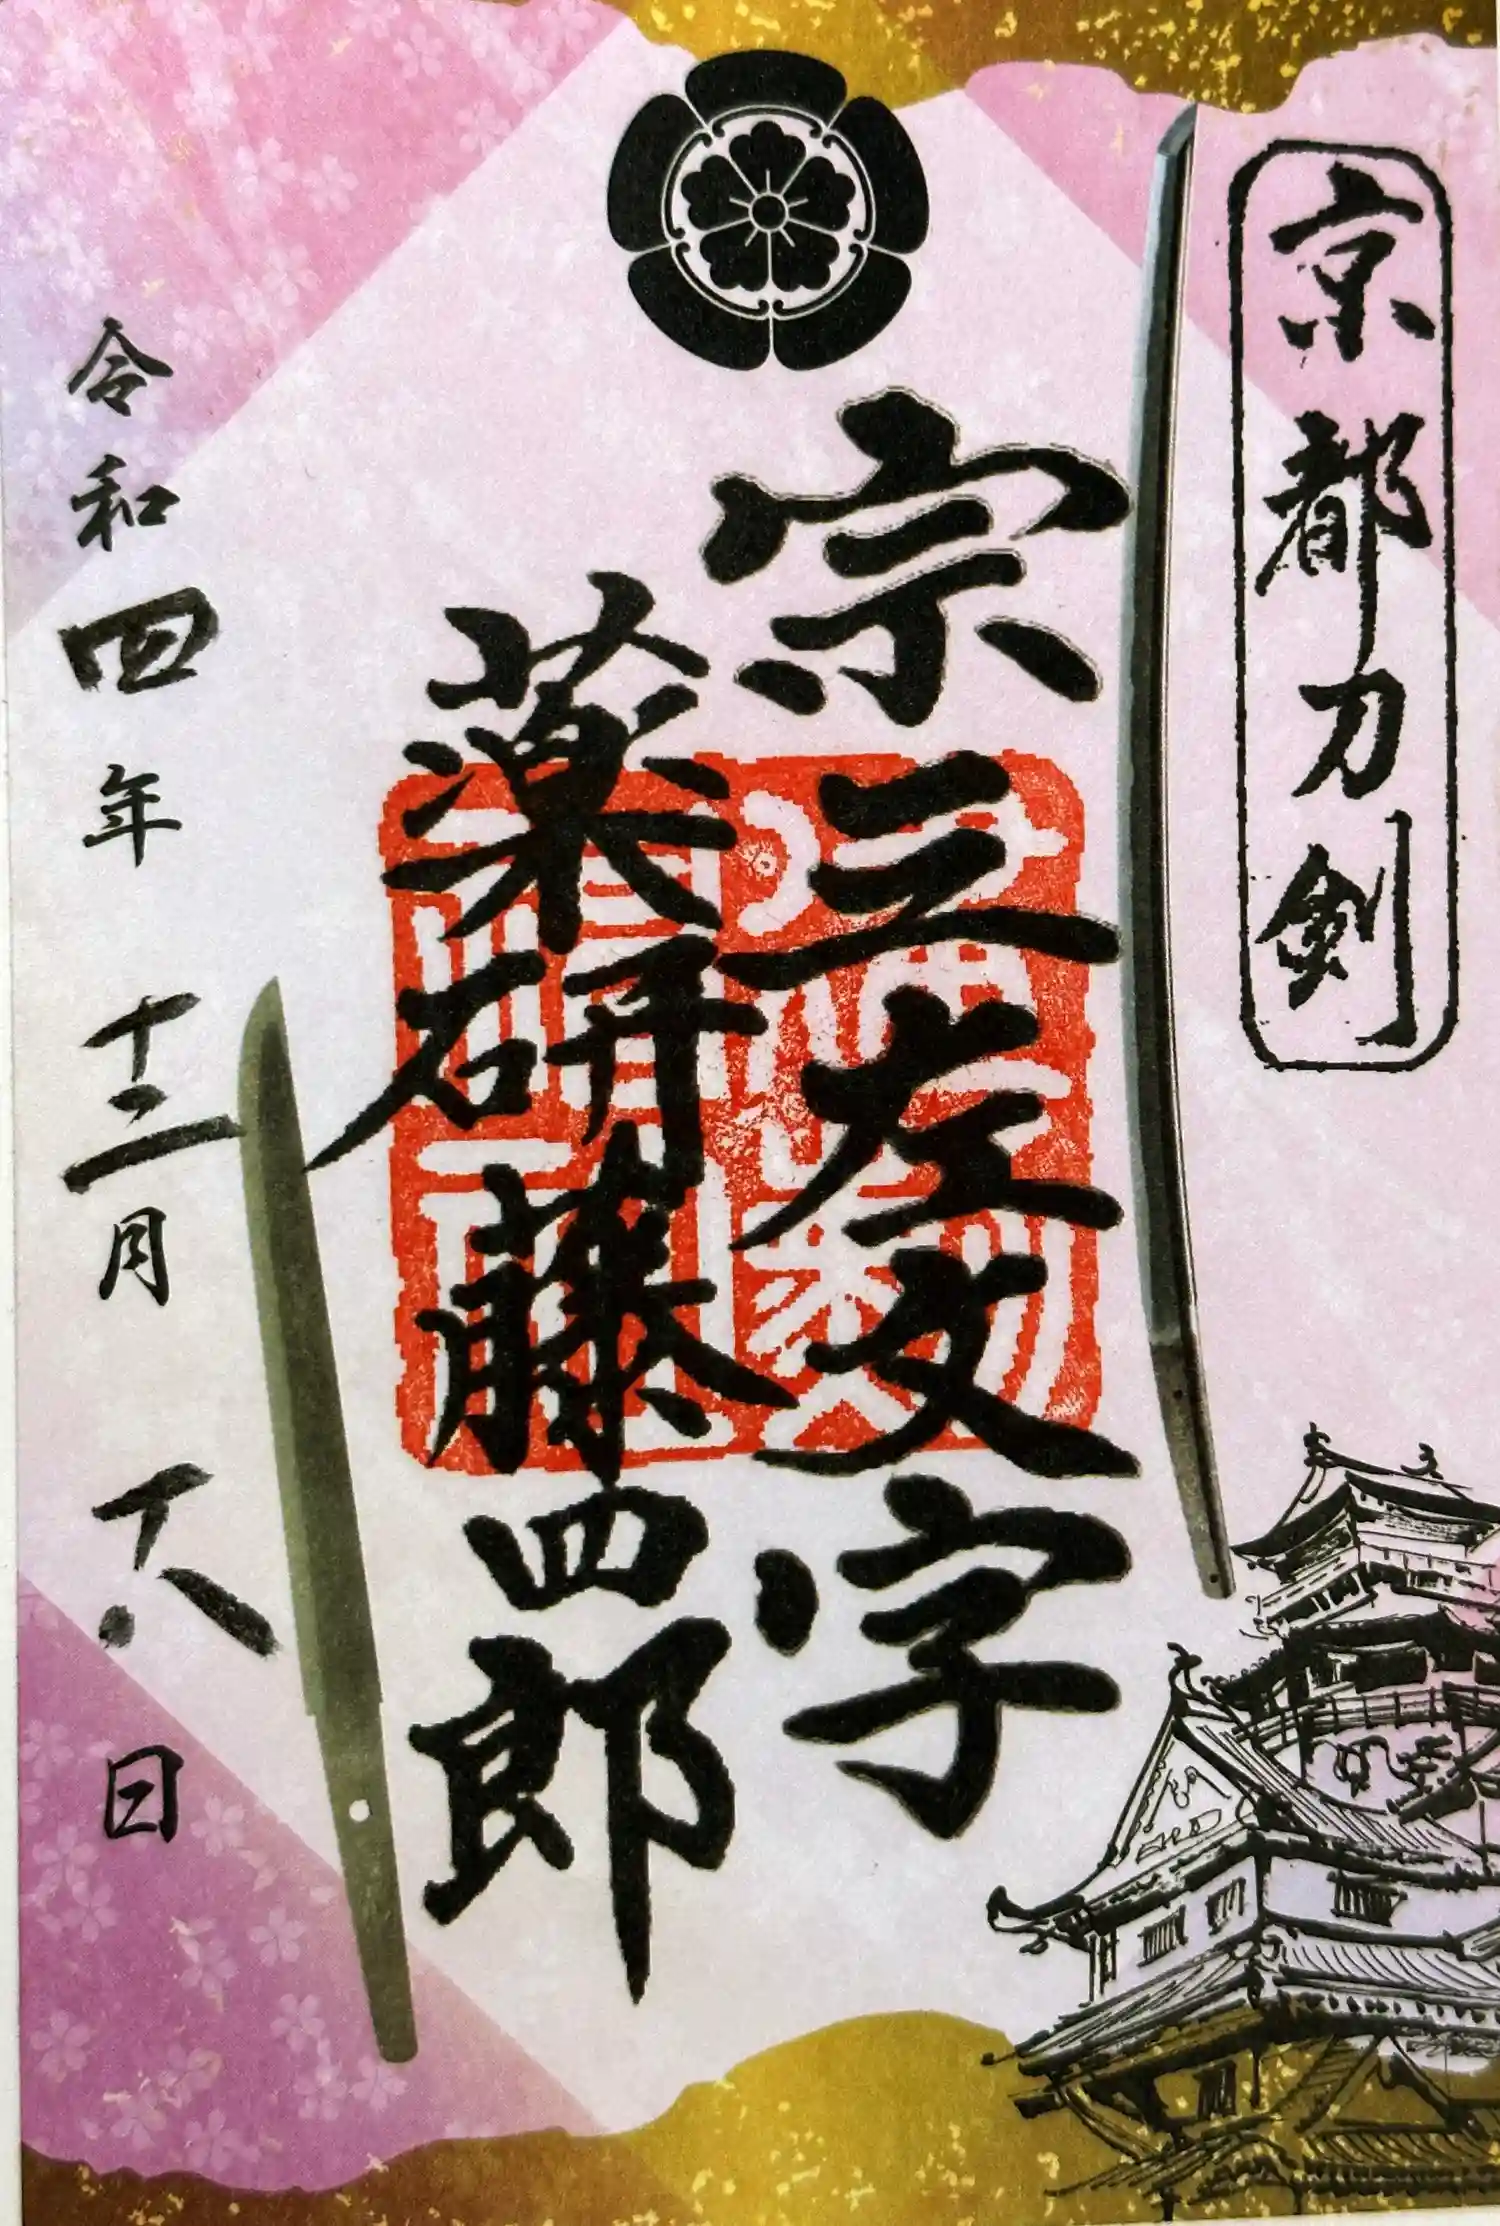 京都刀剣
宗三左文字
薬研藤四郎
令和四年十二月十八日